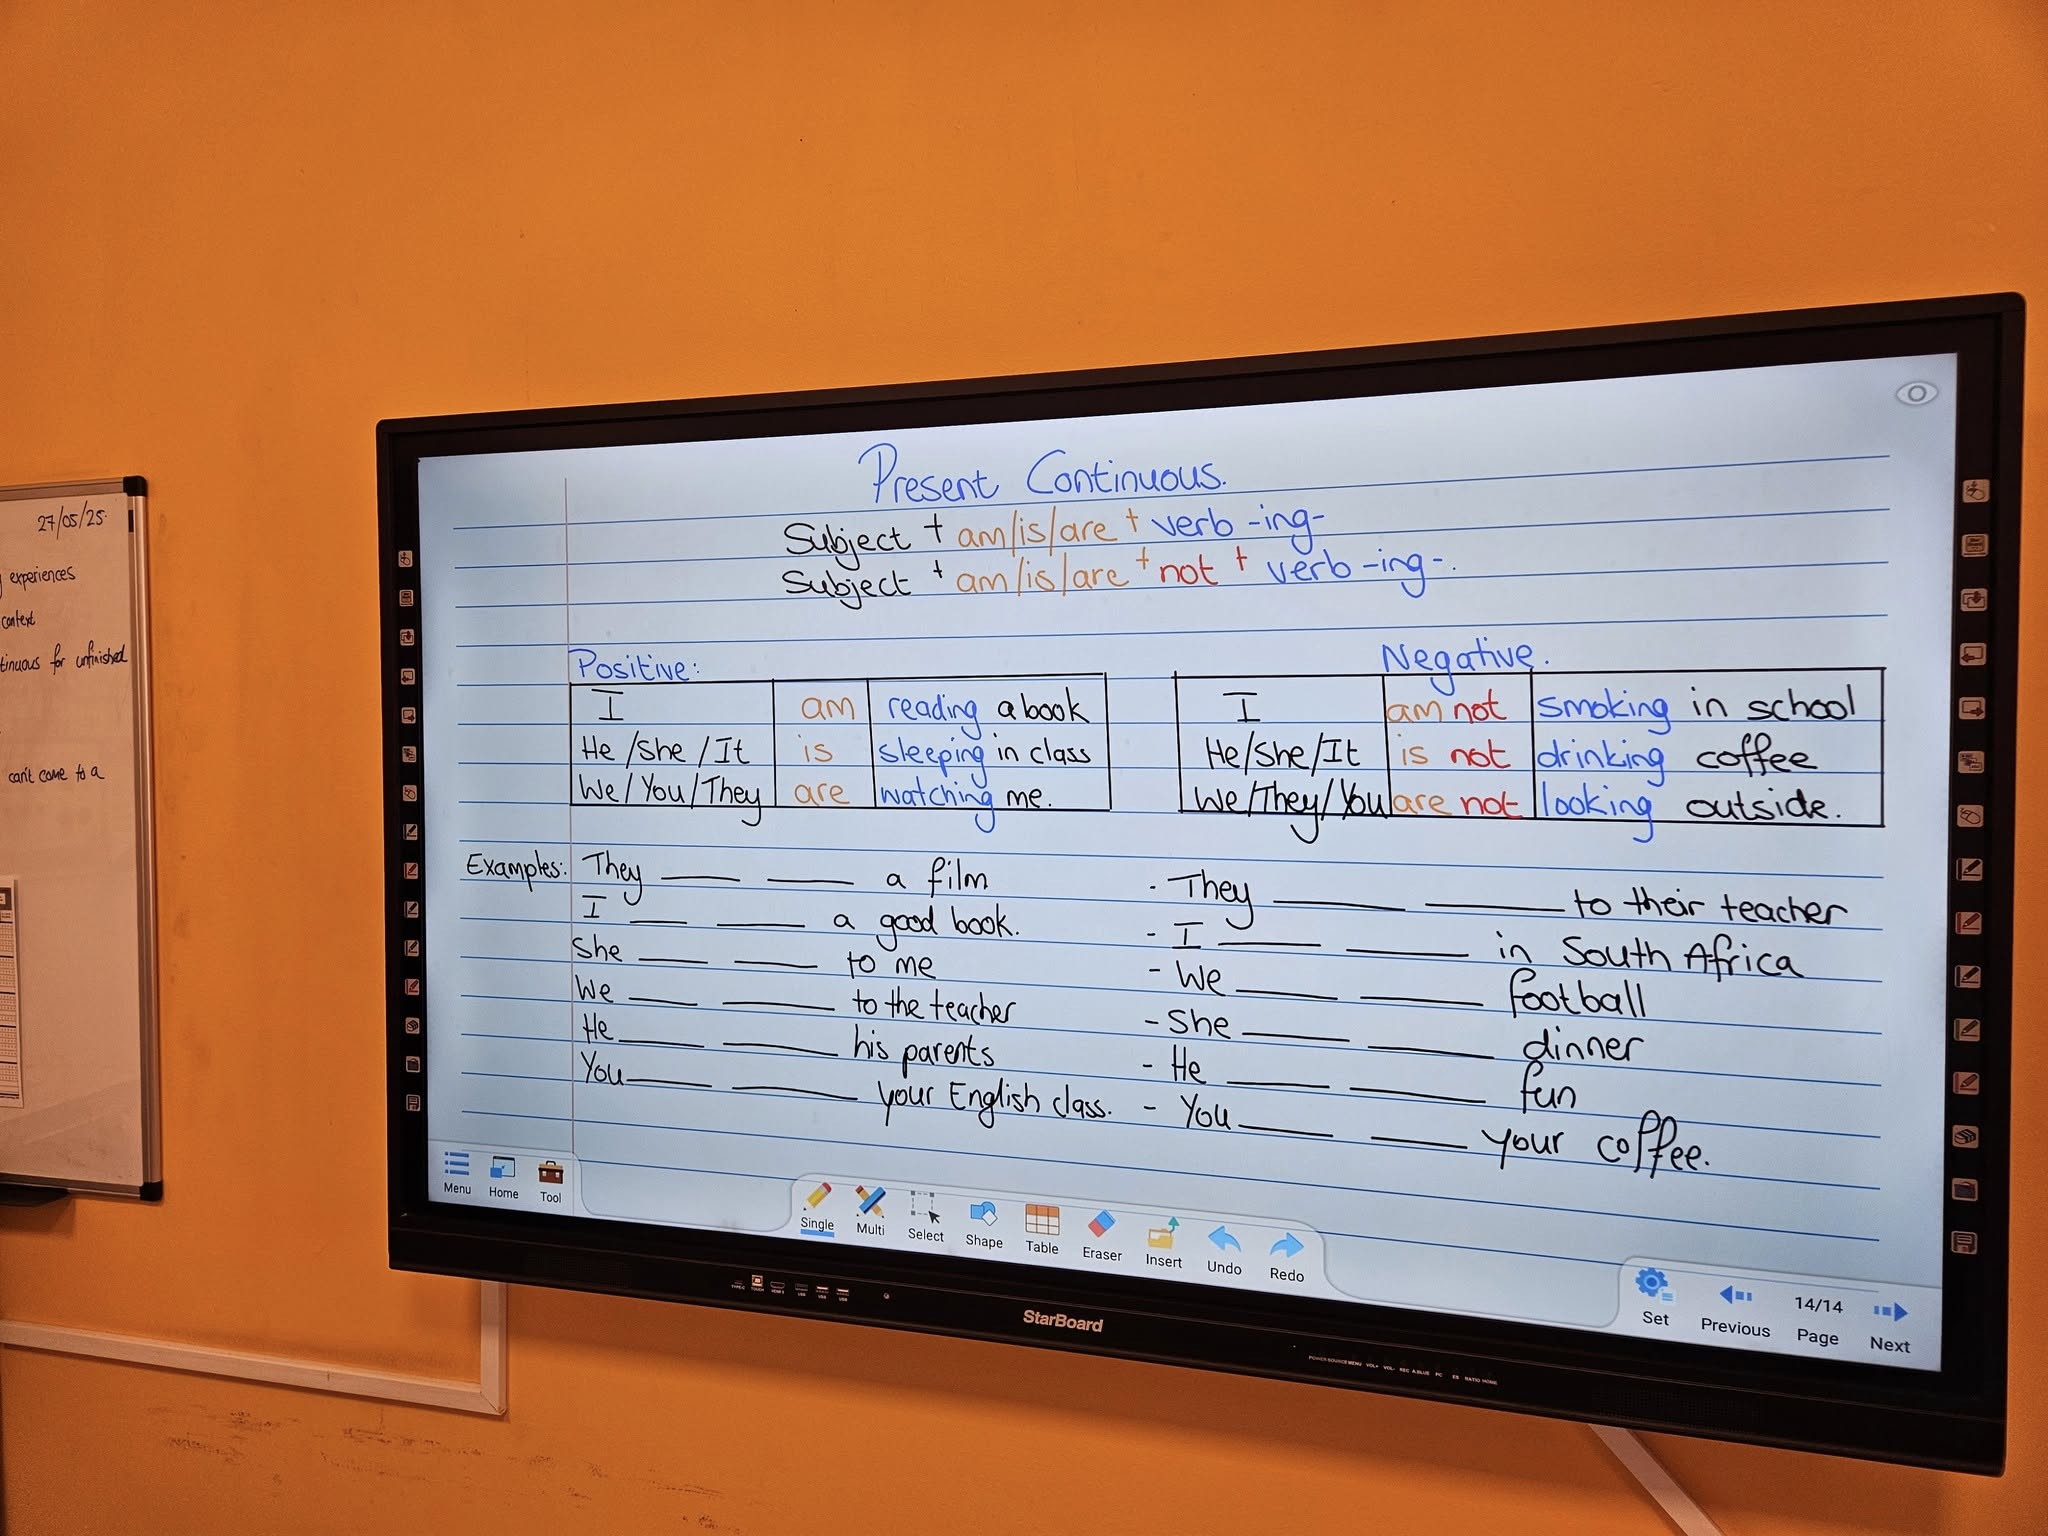 27/05/25
experiences
context
tinuous for unfinished
can't come to a
Present Continuous.
Subject + am/is/are + verb -ing-
Subject + am/is/are + not + verb -ing-.
Positive:
I am reading a book
He/She/It is sleeping in class
We/You/They are watching me.
Negative.
I am not smoking in school
He/She/It is not drinking coffee
We/They/You are not looking outside.
Examples: They ____ ____ a film
I ____ ____ a good book.
She ____ ____ to me
We ____ ____ to the teacher
He ____ ____ his parents
You ____ ____ your English class.
- They ____ ____ to their teacher
- I ____ ____ in South Africa
- We ____ ____ football
- She ____ ____ dinner
- He ____ ____ fun
- You ____ ____ your coffee.
Menu Home Tool
Single Multi Select Shape Table Eraser Insert Undo Redo
Set Previous 14/14 Page Next
StarBoard